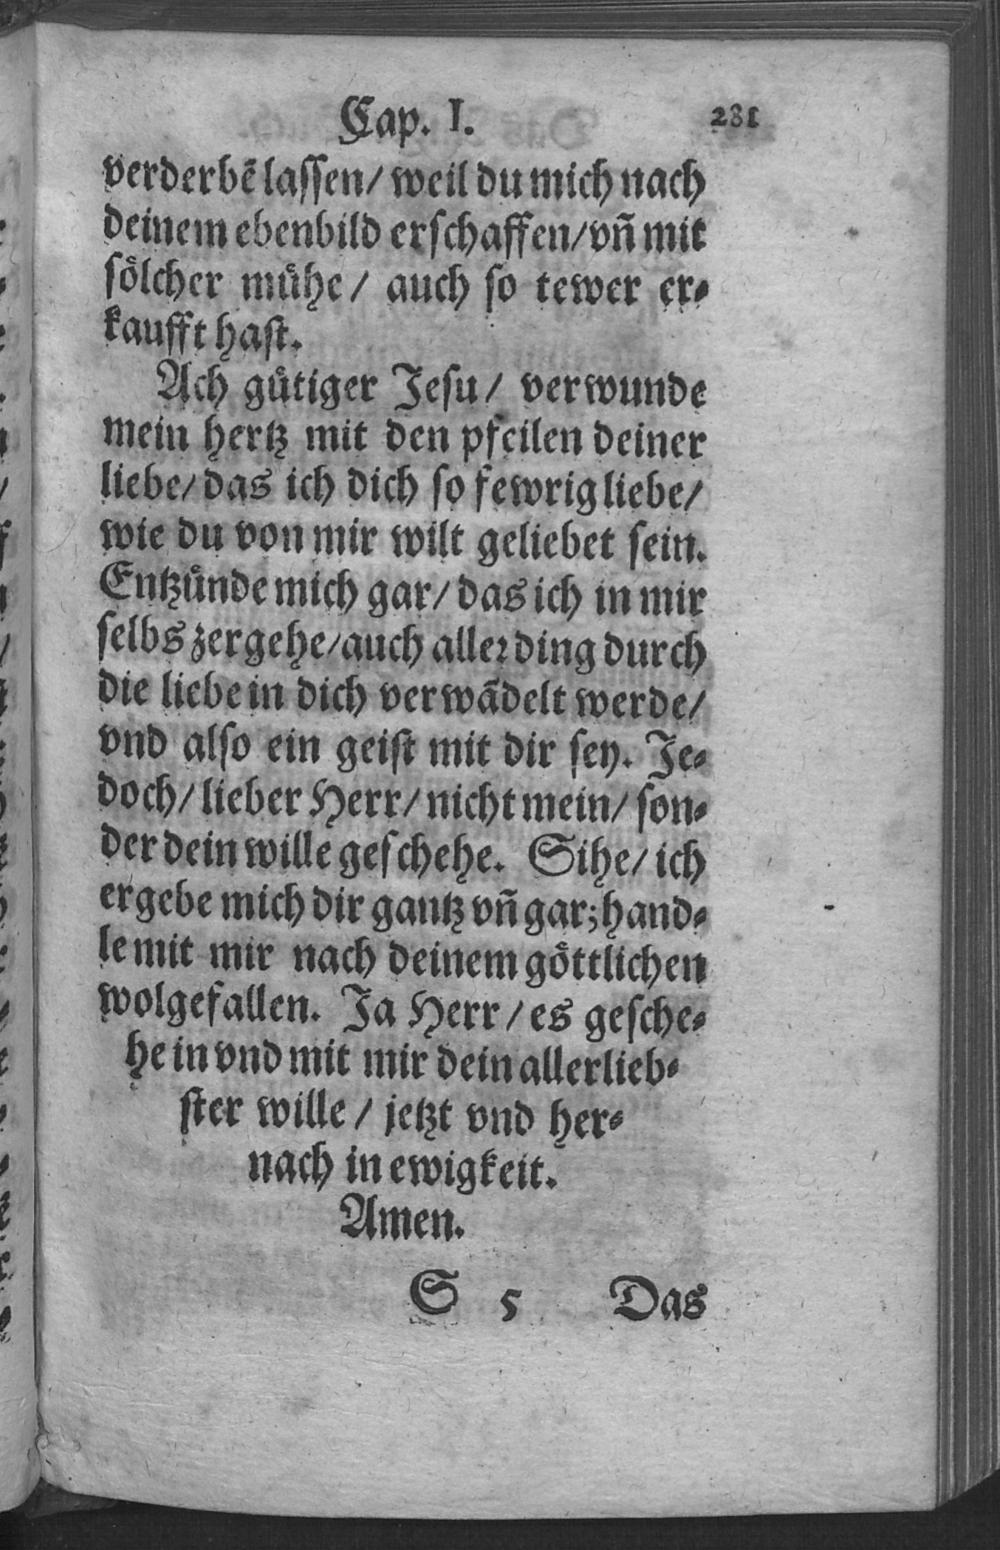 Cap. I. 281
verderbẽ lassen/ weil du mich nach
deinem ebenbild erschaffen/ vñ mit
soͤlcher muͤhe/ auch so tewer er⸗
kaufft hast.
Ach guͤtiger Jesu/ verwunde
mein hertz mit den pfeilen deiner
liebe/ das ich dich so fewrig liebe/
wie du von mir wilt geliebet sein.
Entzuͤnde mich gar/ das ich in mir
selbs zergehe/ auch allerding durch
die liebe in dich verwãdelt werde/
vnd also ein geist mit dir sey. Je⸗
doch/ lieber Herr/ nicht mein/ son⸗
der dein wille geschehe. Sihe/ ich
ergebe mich dir gantz vñ gar; hand⸗
le mit mir nach deinem goͤttlichen
wolgefallen. Ja Herr/ es gesche⸗
he in vnd mit mir dein allerlieb⸗
ster wille/ jetzt vnd her⸗
nach in ewigkeit.
Amen.
S 5 Das